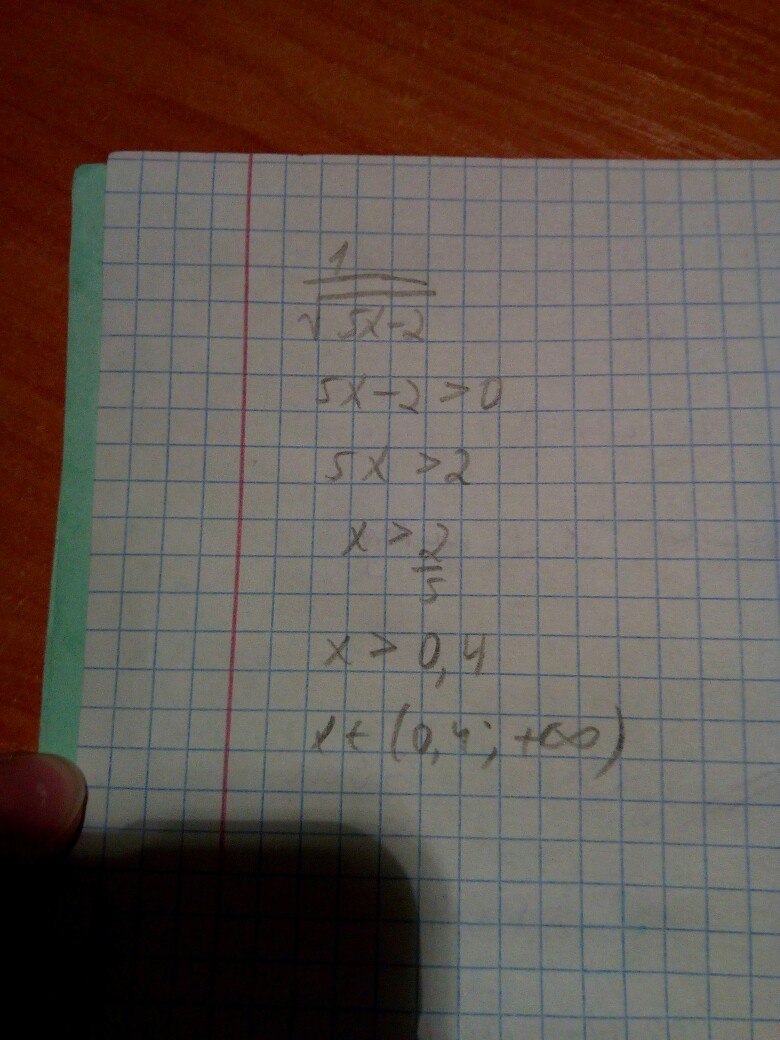 1/√(5x-2)
5x-2>0
5x>2
x>2/5
x>0,4
x∈(0,4;+∞)